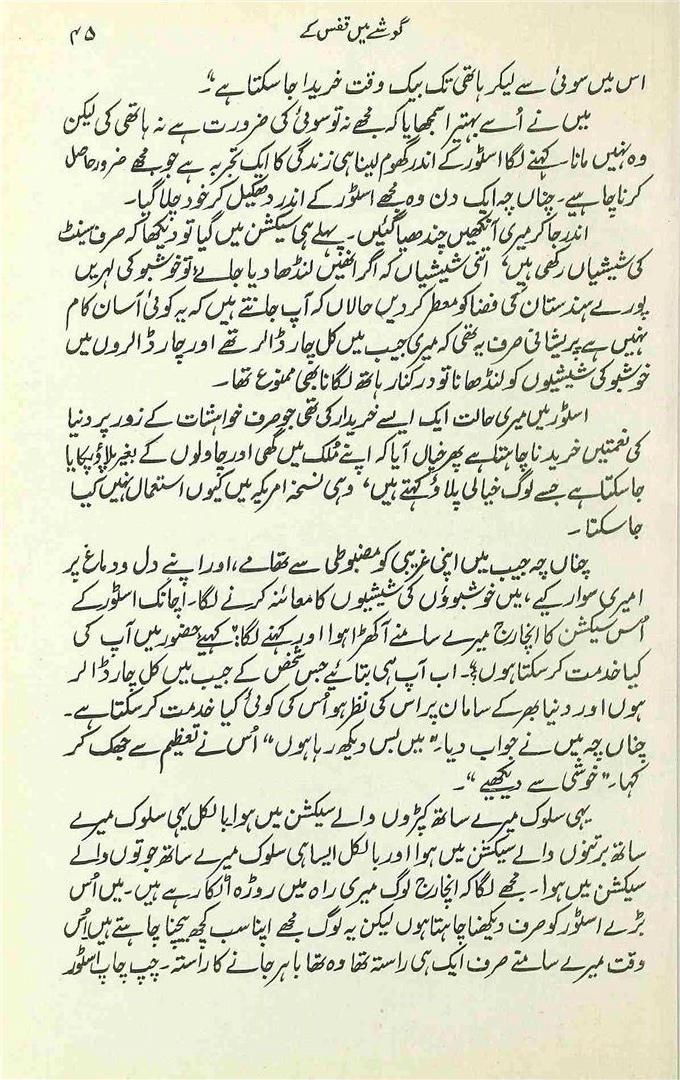 گوشے میں قفس کے
۴۵
اس میں سوئی سے لیکر ہاتھی تک بیک وقت خریدا جا سکتا ہے"۔
میں نے اُسے بہتیرا سمجھایا کہ مجھے نہ تو سوئی کی ضرورت ہے نہ ہاتھی کی لیکن
وہ نہیں مانا۔ کہنے لگا اسٹور کے اندر گھوم لینا ہی زندگی کا ایک تجربہ ہے جو مجھے ضرور حاصل
کرنا چاہیے۔ چناں چہ ایک دن وہ مجھے اسٹور کے اندر دھکیل کر خود چلا گیا۔
اندر جا کر میری آنکھیں چندھیا گئیں۔ پہلے ہی سیکشن میں گیا تو دیکھا کہ صرف سینٹ
کی شیشیاں رکھی ہیں، اتنی شیشیاں کہ اگر انھیں لنڈھا دیا جائے تو خوشبو کی لہریں
پورے ہندستان کی فضا کو معطر کر دیں حالاں کہ آپ جانتے ہیں کہ یہ کوئی آسان کام
نہیں ہے پریشانی صرف یہ تھی کہ میری جیب میں کل چار ڈالر تھے اور چار ڈالروں میں
خوشبو کی شیشیوں کو لنڈھانا تو درکنار ہاتھ لگانا بھی ممنوع تھا۔
اسٹور میں میری حالت ایک ایسے خریدار کی تھی جو صرف خواہشات کے زور پر دنیا
کی نعمتیں خریدنا چاہتا ہے پھر خیال آیا کہ اپنے مُلک میں گھی اور چاولوں کے بغیر پلاؤ پکایا
جا سکتا ہے جسے لوگ خیالی پلاؤ کہتے ہیں، وہی نسخہ امریکہ میں کیوں استعمال نہیں کیا
جا سکتا۔
چناں چہ جیب میں اپنی غریبی کو مضبوطی سے تھامے، اور اپنے دل و دماغ پر
امیری سوار کیے، میں خوشبوؤں کی شیشیوں کا معائنہ کرنے لگا۔ اچانک اسٹور کے
اُس سیکشن کا انچارج میرے سامنے آ کھڑا ہوا اور کہنے لگا: "کہیے حضور میں آپ کی
کیا خدمت کر سکتا ہوں؟"۔ اب آپ ہی بتائیے جس شخص کے جیب میں کل چار ڈالر
ہوں اور دنیا بھر کے سامان پر اس کی نظر ہو اُس کی کوئی کیا خدمت کر سکتا ہے۔
چناں چہ میں نے جواب دیا۔ "میں بس دیکھ رہا ہوں" اُس نے تعظیم سے جھک کر
کہا۔ "خوشی سے دیکھیے"۔
یہی سلوک میرے ساتھ کپڑوں والے سیکشن میں ہوا بالکل یہی سلوک میرے
ساتھ برتنوں والے سیکشن میں ہوا اور بالکل ایسا ہی سلوک میرے ساتھ جوتوں والے
سیکشن میں ہوا۔ مجھے لگا کہ انچارج لوگ میری راہ میں روڑہ اٹکا رہے ہیں۔ میں اُس
بڑے اسٹور کو صرف دیکھنا چاہتا ہوں لیکن یہ لوگ مجھے اپنا سب کچھ بیچنا چاہتے ہیں اُس
وقت میرے سامنے صرف ایک ہی راستہ تھا وہ تھا باہر جانے کا راستہ۔ چپ چاپ اسٹور